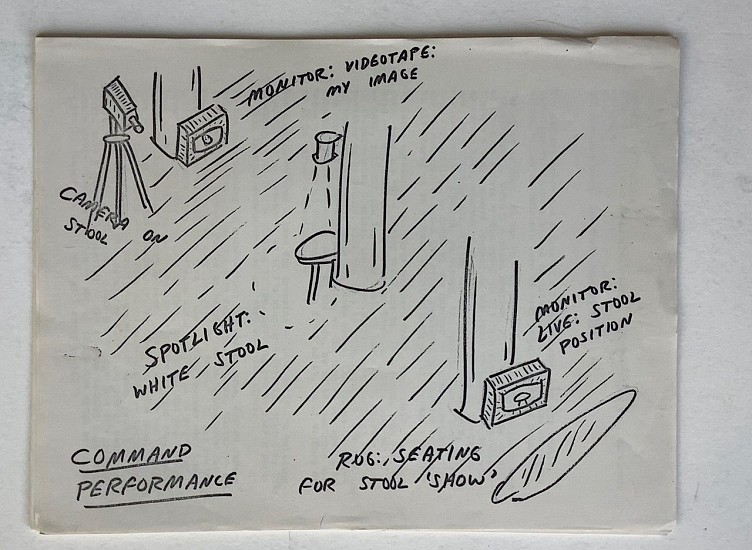 MONITOR: VIDEOTAPE:
MY IMAGE
CAMERA ON
STOOL
MONITOR:
LIVE: STOOL
POSITION
SPOTLIGHT:
WHITE STOOL
COMMAND
PERFORMANCE
RUG: SEATING
FOR STOOL 'SHOW'